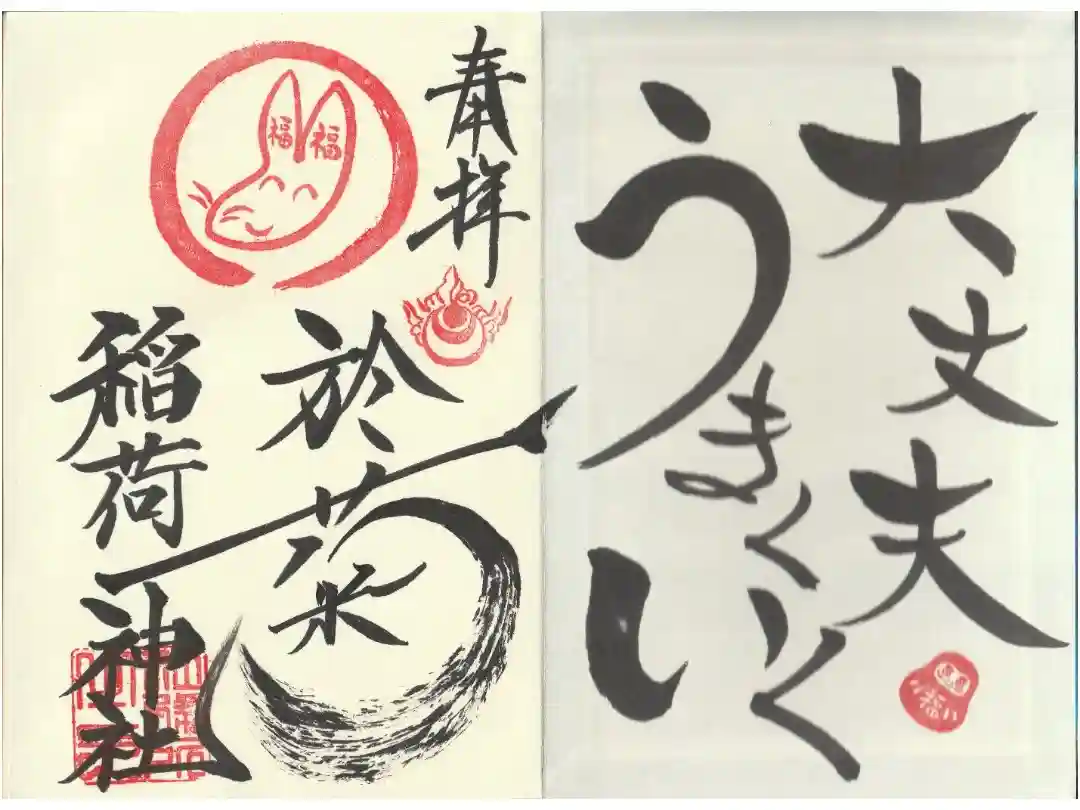 大丈夫
うまくいく
福
奉拝
於菊
稲荷神社
福 福